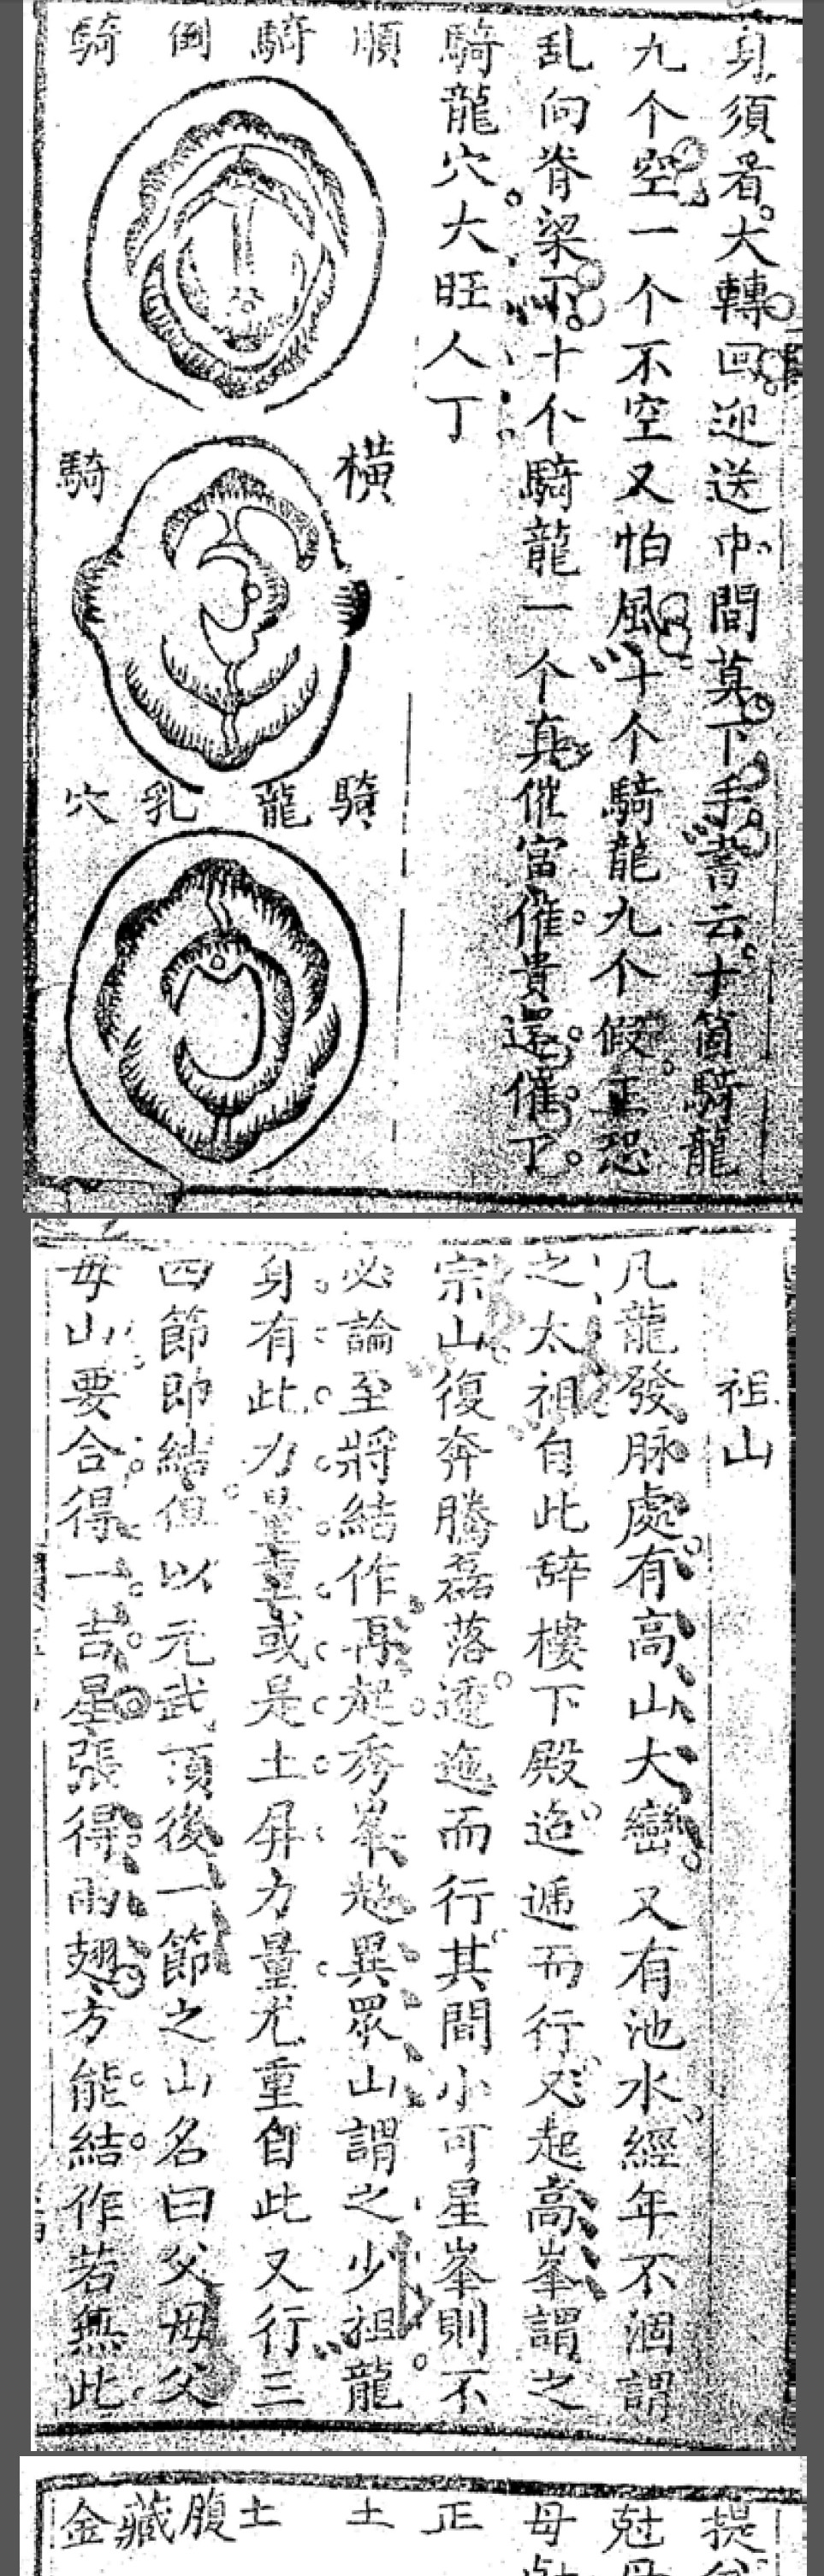 身須看大轉回迎送中間莫下手書云十箇騎龍
九个空一个不空又怕風十个騎龍九个假正恐
乱向脊梁下十个騎龍一个真催富催貴還催丁
騎龍穴大旺人丁
順騎
倒騎
橫騎
騎龍乳穴
祖山
凡龍發脉處有高山大巒又有池水經年不涸謂
之太祖自此辞樓下殿迢遞而行又起高峯謂之
宗山復奔騰磊落逶迤而行其間小可星峯則不
必論至將結作再起秀峯逈異眾山謂之少祖龍
身有此力量重或是土屏力量尤重自此又行三
四節即結但以元武頂後一節之山名曰父母父
母山要合得一吉星張得兩翅方能結作若無此
提
尅
母
正
土
土
腹
藏
金